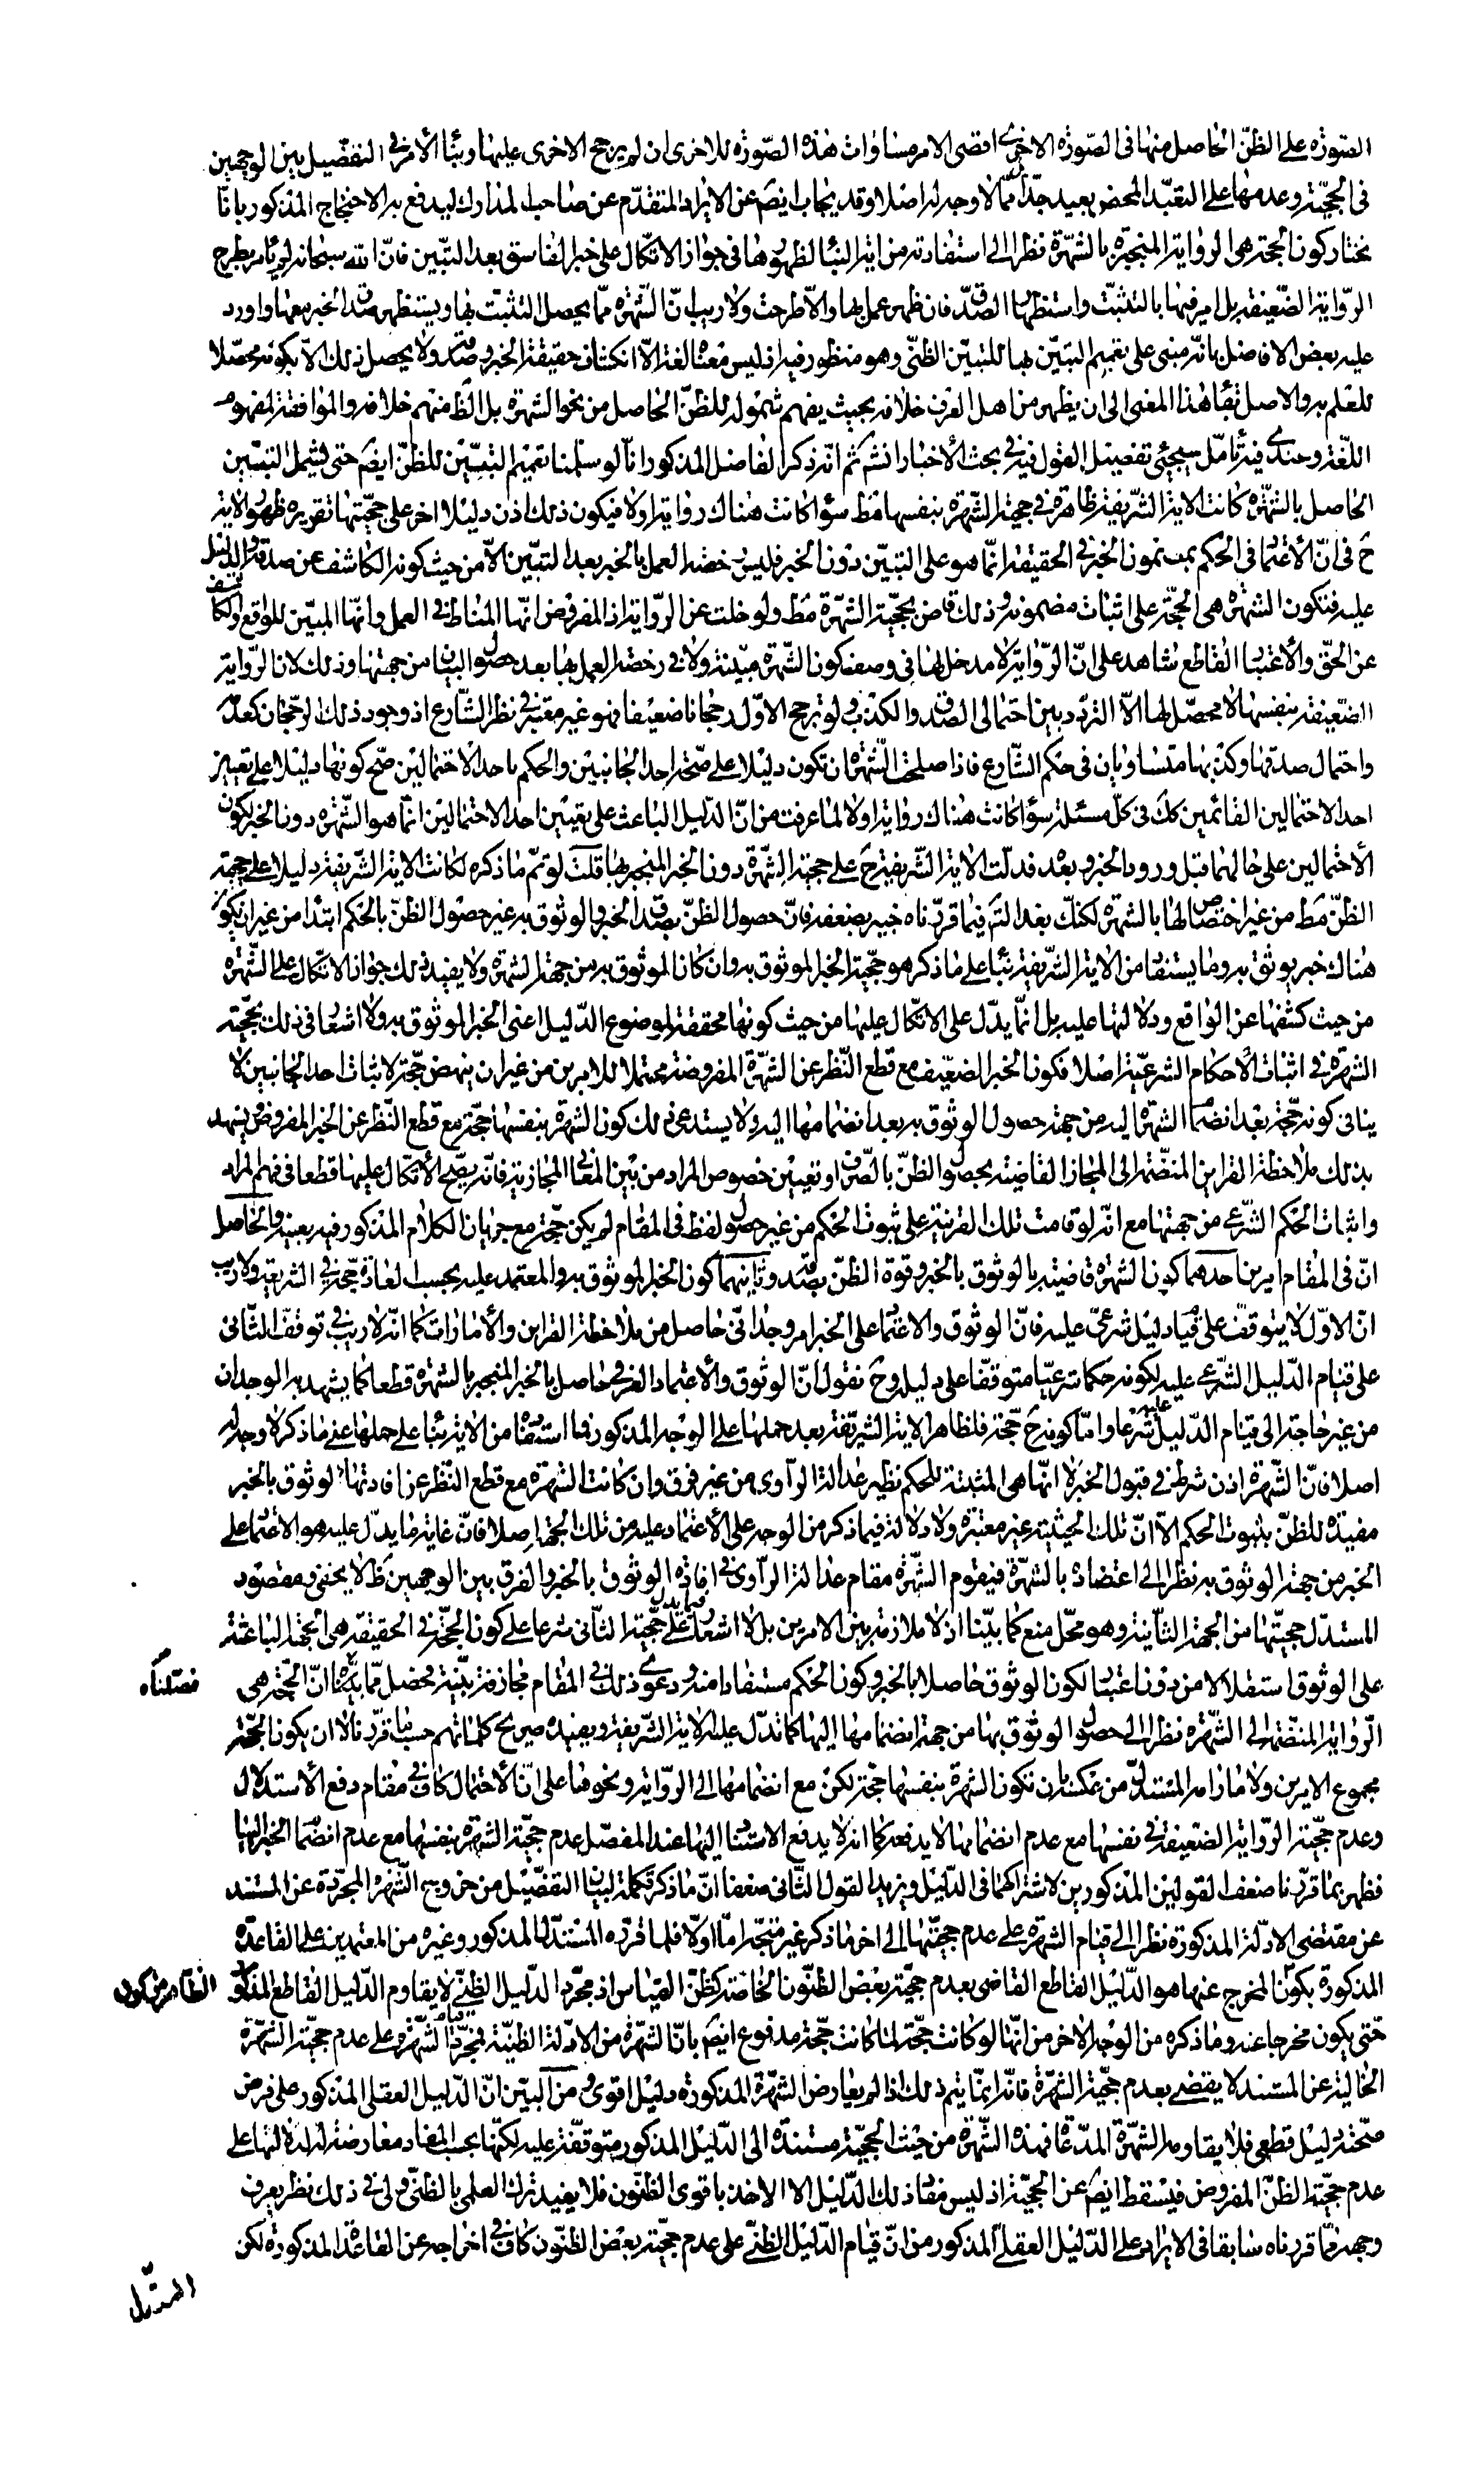 الصورة على الظن الحاصل منها فى الصورة الاخرى اقصى الامر مساوات هذه الصورة للاخرى ان لم يرجح الاخرى عليها وبناء الأمر فى التفصيل بين الوجهين
فى الحجية وعدمها على التعبد المحض بعيد جدا بل مما لا وجه له اصلا وقد يجاب ايضم عن الايراد المتقدم عن صاحب المدارك ليدفع به الاحتجاج المذكور بانا
نختار كون الحجة هى الرواية المنجبرة بالشهرة نظرا الى استفادته من اية النبأ لظهورها فى جواز الاتكال على خبر الفاسق بعد التبين فان الله سبحانه لم يامر بطرح
الرواية الضعيفة بل امر فيها بالتثبت واستظهار الصدق فان ظهر عمل بها والا طرحت ولا ريب ان الشهرة مما يحصل التثبت بها ويستظهر صدق الخبر معها واورد
عليه بعض الافاضل بانه مبنى على تعميم التبين بها للتبين الظنى وهو منظور فيه اذ ليس معناه لغة الا انكشاف حقيقة الخبر وصدقه ولا يحصل ذلك الا بكونه محصلا
للعلم به والاصل بقاء هذا المعنى الى ان يظهر من اهل العرف خلافه بحيث يفهم شموله للظن الحاصل من نحو الشهرة بل الظ منهم خلافه والموافقة لمفهوم
اللغة وعندى فيه تأمل سيجئ تفصيل القول فيه فى بحث الأخبار انشم ثم انه ذكر الفاضل المذكور انا لو سلمنا تعميم التبيين للظن ايضم حتى يشمل التبيين
الحاصل بالشهرة كانت الاية الشريفة ظاهرة فى حجية الشهرة بنفسها مط سواء كانت هناك رواية اولا فيكون ذلك اذن دليلا اخر على حجيتها تقريره ظهور الاية
ح فى ان الأعتماد فى الحكم بمضمون الخبر فى الحقيقة انما هو على التبيين دون الخبر فليس رخصة العمل بالخبر بعد التبين الا من حيث كونه الكاشف عن صدقه والدليل
عليه فتكون الشهرة هى الحجة على اثبات مضمونه وذلك قاض بحجية الشهرة مط ولو خلت عن الرواية اذ المفروض انها المناط فى العمل وانها المبين للواقع والكاشف
عن الحق والأعتبار القاطع شاهد على ان الرواية لا مدخل لها فى وصف كون الشهرة مبينة ولا فى رخصة العمل بها بعد حصول البيان من جهتها وذلك لان الرواية
الضعيفة بنفسها لا محصل لها الا التردد بين احتمالى الصدق والكذب ولو ترجح الاول رجحانا ضعيفا فهو غير معتبر فى نظر الشارع اذ وجود ذلك الرجحان كعدمه
واحتمال صدقها وكذبها متساويان فى حكم الشارع فاذا صلحت الشهرة ان تكون دليلا على صحة احد الجانبين والحكم باحد الاحتمالين صح كونها دليلا على تعيين
احد الاحتمالين القائمين كك فى كل مسئلة سواء كانت هناك رواية اولا لما عرفت من ان الدليل الباعث على تعيين احد الاحتمالين انما هو الشهرة دون الخبر لكون
الأحتمالين على حالهما قبل ورود الخبر وبعده فدلت الاية الشريفة ح على حجية الشهرة دون الخبر المنجبر بها قلت لو تم ما ذكره لكانت الاية الشريفة دليلا على حجية
الظن مط من غير اختصاص لها بالشهرة لكنك بعد التأمل فيما قررناه خبير بضعفه فان حصول الظن بصدق الخبر والوثوق به غير حصول الظن بالحكم ابتداء من غير ان يكون
هناك خبر يوثق به وما يستفاد من الاية الشريفة بناء على ما ذكر هو حجية الخبر الموثوق به وان كان الموثوق به من جهة الشهرة ولا يفيد ذلك جواز الاتكال على الشهرة
من حيث كشفها عن الواقع ودلالتها عليه بل انما يدل على الاتكال عليها من حيث كونها محققة لموضوع الدليل اعنى الخبر الموثوق به ولا اشعار فى ذلك بحجية
الشهرة فى اثبات الأحكام الشرعية اصلا فكون الخبر الضعيف مع قطع النظر عن الشهرة المفروضة محتملا للامرين من غير ان ينهض حجة لاثبات احد الجانبين لا
ينافى كونه حجة بعد انضمام الشهرة اليه من جهة حصول الوثوق به بعد انضمامها اليه ولا يستدعى ذلك كون الشهرة بنفسها حجة مع قطع النظر عن الخبر المفروض يشهد
بذلك ملاحظة القراين المنضمة الى المجاز القاضية بحصول الظن بالصرف او تعيين خصوص المراد من بين المعانى المجازية فانه يصح الأتكال عليها قطعا فى فهم المراد
واثبات الحكم الشرعى من جهتها مع انه لو قامت تلك القرينة على ثبوت الحكم من غير حصول لفظ فى المقام لم يكن حجة مع جريان الكلام المذكور فيه بعينه والحاصل
ان فى المقام امرين احدهما كون الشهرة قاضية بالوثوق بالخبر وقوة الظن بصدقه وثانيهما كون الخبر الموثوق به والمعتمد عليه بحسب العادة حجة فى الشريعة ولا ريب
ان الاول لا يتوقف على قيام دليل شرعى عليه فان الوثوق والاعتماد على الخبر امر وجدانى حاصل من ملاحظة القراين والأمارات كما انه لا ريب فى توقف الثانى
على قيام الدليل الشرعى عليه لكونه حكما شرعيا متوقفا على دليله وح نقول ان الوثوق والأعتماد العرفى حاصل بالخبر المنجبر بالشهرة قطعا كما يشهد به الوجدان
من غير حاجة الى قيام الدليل عليه شرعا واما كونه ح حجة فلظاهر الاية الشريفة بعد حملها على الوجه المذكور فما استفاد من الاية بناء على حملها على ما ذكر لا وجه له
اصلا فان الشهرة اذن شرط فى قبول الخبر لا انها هى المثبتة للحكم نظير عدالة الراوى من غير فرق وان كانت الشهرة مع قطع النظر عن افادتها الوثوق بالخبر
مفيدة للظن بثبوت الحكم الا ان تلك الحيثية غير معتبرة ولا دلالة فيما ذكر من الوجه على الأعتماد عليه من تلك الجهة اصلا فان غاية ما يدل عليه هو الاعتماد على
الخبر من جهة الوثوق به نظرا الى اعتضاده بالشهرة فيقوم الشهرة مقام عدالة الراوى فى افادة الوثوق بالخبر والفرق بين الوجهين ظ لا يخفى ومقصود
المستدل حجيتها من الجهة الثانية وهو محل منع كما بينا اذ لا ملازمة بين الامرين بل لا اشعار فيما يدل على حجية الثانى شرعا على كون الحجة فى الحقيقة هى الجهة الباعثة
على الوثوق استقلالا من دون اعتبار لكون الوثوق حاصلا بالخبر وكون الحكم مستفادا منه ودعوى ذلك فى المقام مجازفة بينة فحصل مما بيناه ان الحجة هى
فصلناه
الرواية المنضمة الى الشهرة نظرا الى حصول الوثوق بها من جهة انضمامها اليها كما تدل عليه الاية الشريفة ويفيده صريح كلماتهم حسبما قررنا لا ان يكون الحجة
مجموع الامرين ولا ما رامه المستدل من تمكنه بان تكون الشهرة بنفسها حجة لكن مع انضمامها الى الرواية ونحوها على ان الأحتمال كاف فى مقام دفع الأستدلال
وعدم حجية الرواية الضعيفة فى نفسها مع عدم انضمامها لا يدفعه كما انه لا يدفع الاستناد اليها عند المفصل عدم حجية الشهرة بنفسها مع عدم انضمام الخبر اليها
فظهر بما قررنا ضعف القولين المذكورين لاشتراكهما فى الدليل ويزيد القول الثانى ضعفا ان ما ذكر تكملة لبيان التفصيل من خروج الشهرة المجردة عن المستند
عن مقتضى الادلة المذكورة نظرا الى قيام الشهرة على عدم حجيتها الى اخر ما ذكر غير متجه اما اولا فلما قرره المستدل المذكور وغيره من المعتمدين على القاعدة
المذكورة بكون المخرج عنها هو الدليل القاطع القاضى بعدم حجية بعض الظنون الخاصة كظن القياس اذ مجرد الدليل الظنى لا يقاوم الدليل القاطع المذكور
حتى يكون مخرجا عنه وما ذكره من الوجه الاخر من انها لو كانت حجة لما كانت حجة مدفوع ايضم بان الشهرة من الادلة الظنية فمجرد قيام الشهرة على عدم حجية الشهرة
الخالية عن المستند لا يقضى بعدم حجية الشهرة فانه انما يتم ذلك اذا لم يعارض الشهرة المذكورة دليل اقوى ومن البين ان الدليل العقلى المذكور على فرض
صحته دليل قطعى فلا يقاومه الشهرة المدعاة فهذه الشهرة من حيث الحجية مستندة الى الدليل المذكور متوقفة عليه لكنها بحسب المفاد معارضة له لدلالتها على
عدم حجية الظن المفروض فيسقط ايضم عن الحجية اذ ليس مفاد ذلك الدليل الا الاخذ باقوى الظنون فلا يفيد ترك العلمى بالظنى ولى فى ذلك نظر يعرف
وجهه مما قررناه سابقا فى الايراد على الدليل العقلى المذكور من ان قيام الدليل الظنى على عدم حجية بعض الظنون كاف فى اخراجه عن القاعدة المذكورة لكن
المستدل